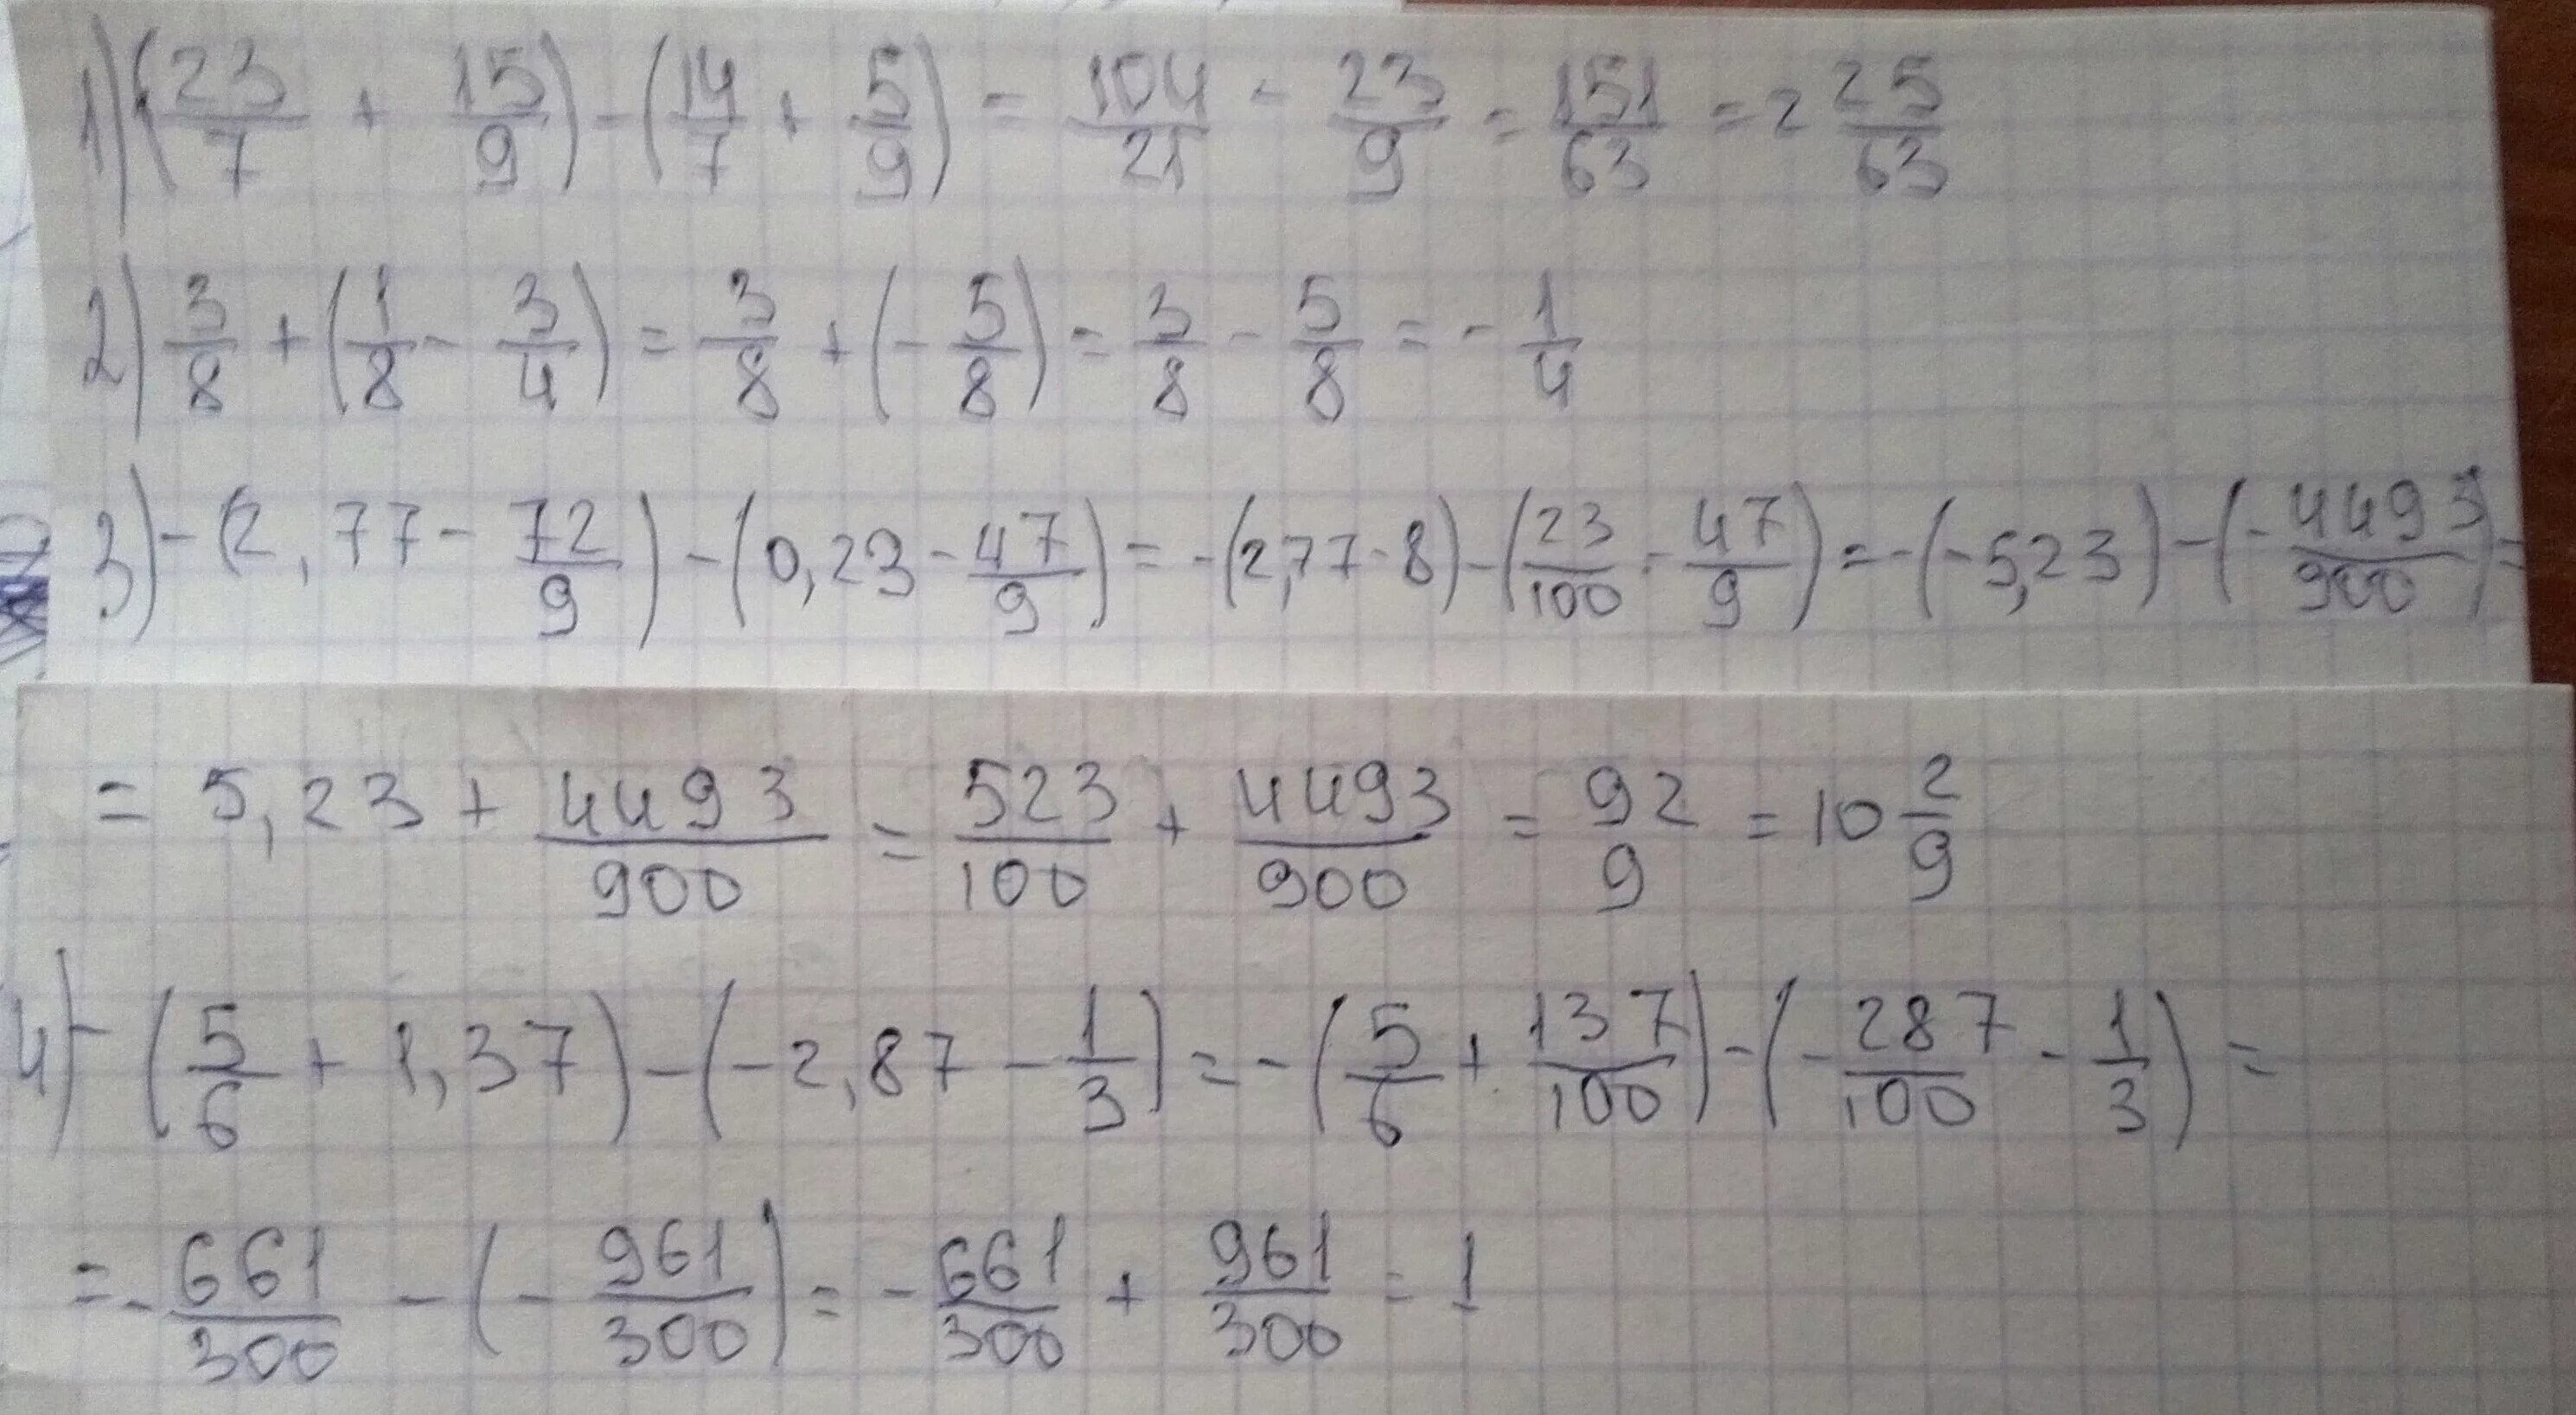 1) (23/7 + 15/9) - (14/7 + 5/9) = 104/21 - 23/9 = 151/63 = 2 25/63
2) 3/8 + (1/8 - 3/4) = 3/8 + (- 5/8) = 3/8 - 5/8 = - 1/4
3) - (2,77 - 72/9) - (0,23 - 47/9) = - (2,77 - 8) - (23/100 - 47/9) = - (-5,23) - (- 4493/900) =
= 5,23 + 4493/900 = 523/100 + 4493/900 = 92/9 = 10 2/9
4) - (5/6 + 1,37) - (-2,87 - 1/3) = - (5/6 + 137/100) - (- 287/100 - 1/3) =
= - 661/300 - (- 961/300) = - 661/300 + 961/300 = 1